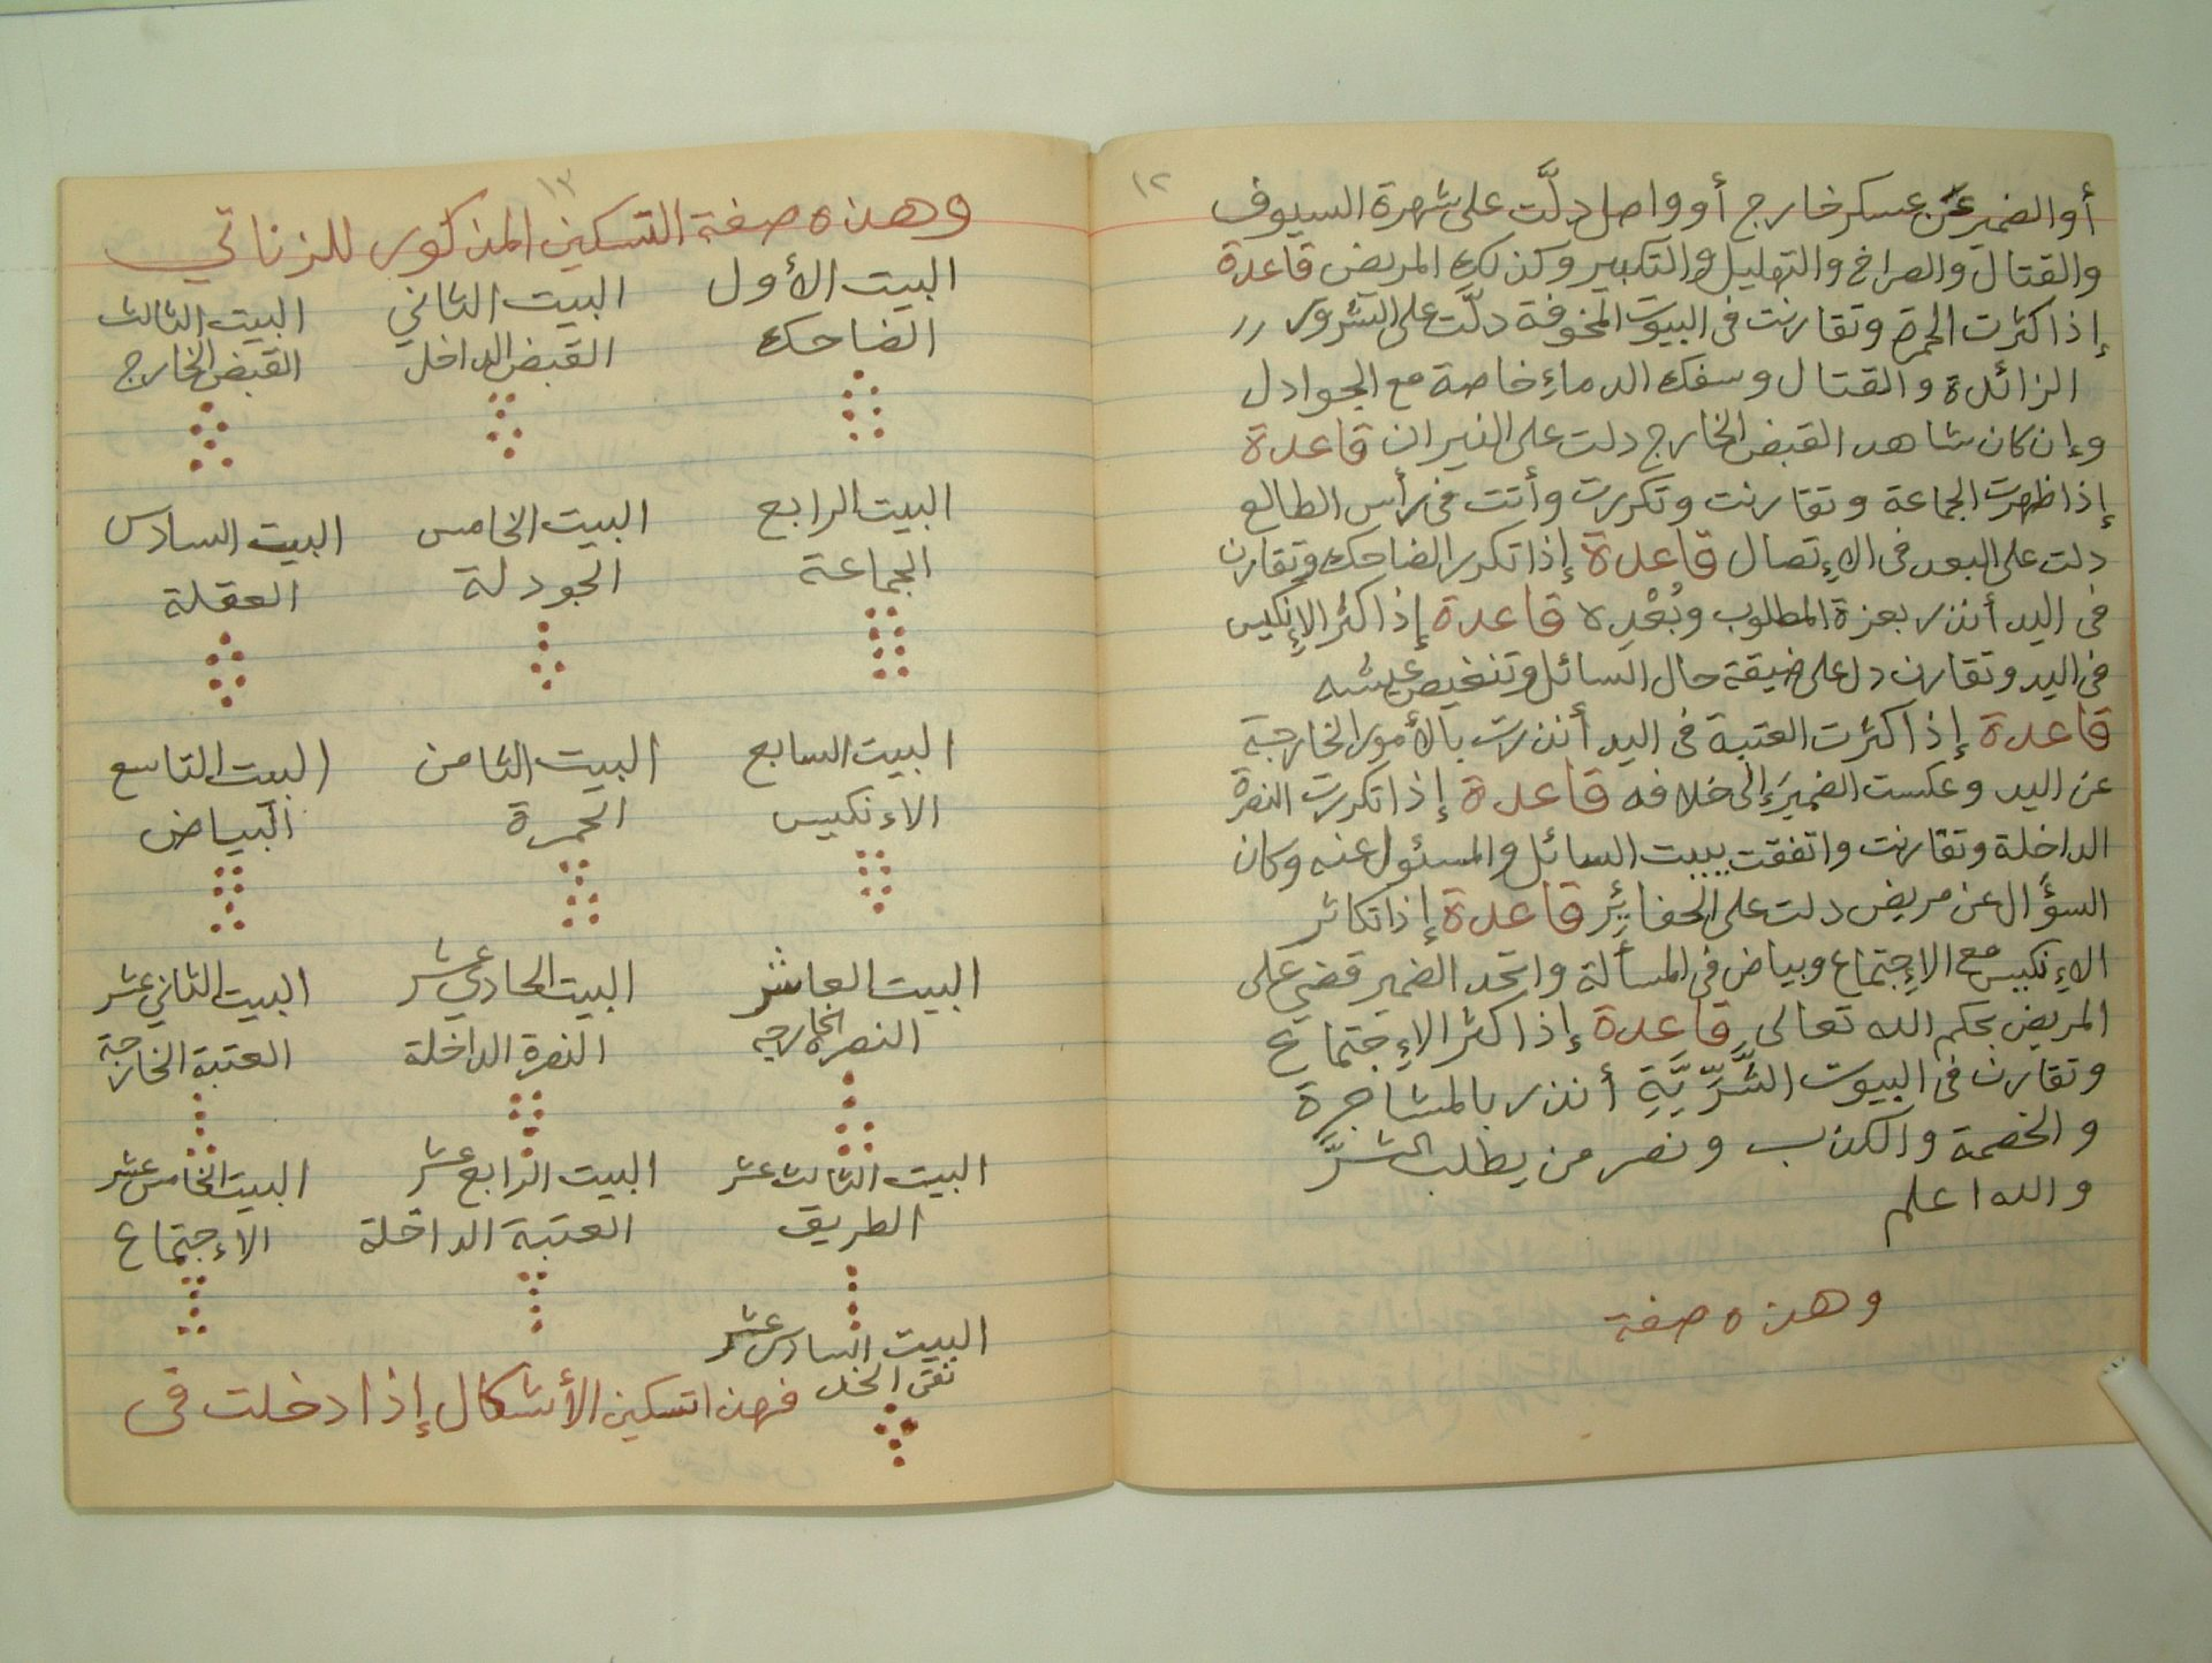 ١٢
أو الضمير عن عسكر خارج أو واصل دلَّت على شهرة السيوف
والقتال والصراخ والتهليل والتكبير وكذلك المريض قاعدة
إذا كثرت الحمرة وتقارنت فى البيوت المخوفة دلَّت على الشرور
الزائدة والقتال وسفك الدماءِ خاصة مع الجوادل
وإن كان شاهد القبض الخارج دلت على النيران قاعدة
إذا ظهرت الجماعة وتقارنت وتكررت وأتت فى رأس الطالع
دلت على البعد فى الإتصال قاعدة إذا تكرر الضاحك وتقارن
فى اليد أنذر بعزة المطلوب وبُعْدِه قاعدة إذا كثر الإنكيس
فى اليد وتقارن دل على ضيقة حال السائل وتنغيص عيشه
قاعدة إذا كثرت العتبة فى اليد أنذرت بالأمور الخارجة
عن اليد وعكست الضميرَ إلى خلافه قاعدة إذا تكررت النصرة
الداخلة وتقارنت واتفقت ببيت السائل والمسئول عنه وكان
السؤال عن مريض دلت على الحفائِر قاعدة إذا تكاثر
الإنكيس مع الإجتماع وبياض فى المسألة واتحد الضمير قضي على
المريض بحكم الله تعالى قاعدة إذا كثر الإجتماع
وتقارن فى البيوت الشَّرِّيَّةِ أنذر بالمشاجرة
والخصمة والكذب ونصر من يطلب الشرَّ
والله اعلم
وهذه صفة
١٣
وهذه صفة التسكين المذكور للزناتي
البيت الأول البيت الثاني البيت الثالث
الضاحك القبض الداخل القبض الخارج
البيت الرابع البيت الخامس البيت السادس
الجماعة الجودلة العقلة
البيت السابع البيت الثامن البيت التاسع
الاءنكيس الحمرة البياض
البيت العاشر البيت الحادي عشر البيت الثاني عشر
النصرة الخارجه النصرة الداخلة العتبة الخارجة
البيت الثالث عشر البيت الرابع عشر البيت الخامس عشر
الطريق العتبة الداخلة الاءجتماع
البيت السادس عشر
نقى الخد فهذا تسكين الأشكال إذا دخلت فى